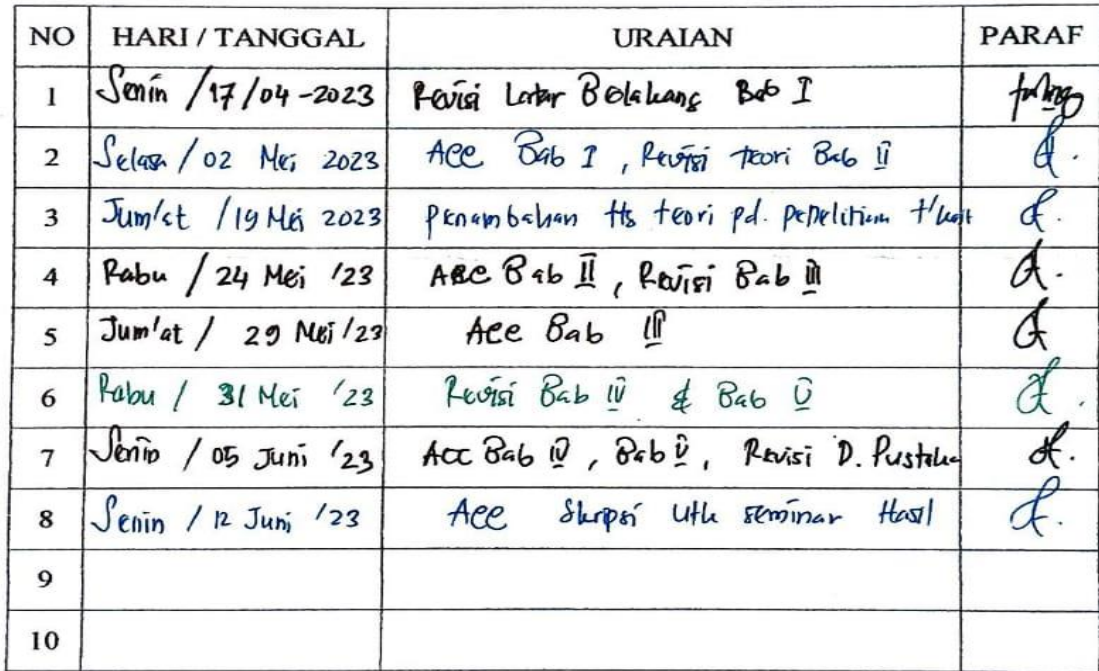 NO HARI / TANGGAL URAIAN PARAF
1 Senin / 17/04-2023 Revisi Latar Belakang Bab I
2 Selasa / 02 Mei 2023 Acc Bab I, Revisi teori Bab II
3 Jum'at / 19 Mei 2023 Penambahan ttg teori pd. penelitian t'kait
4 Rabu / 24 Mei '23 Acc Bab II, Revisi Bab III
5 Jum'at / 29 Mei '23 Acc Bab III
6 Rabu / 31 Mei '23 Revisi Bab IV & Bab V
7 Senin / 05 Juni '23 Acc Bab IV, Bab V, Revisi D. Pustaka
8 Senin / 12 Juni '23 Acc Skripsi utk seminar Hasil
9
10